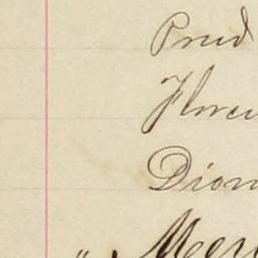 Prud
Flore
Dion
" Mer